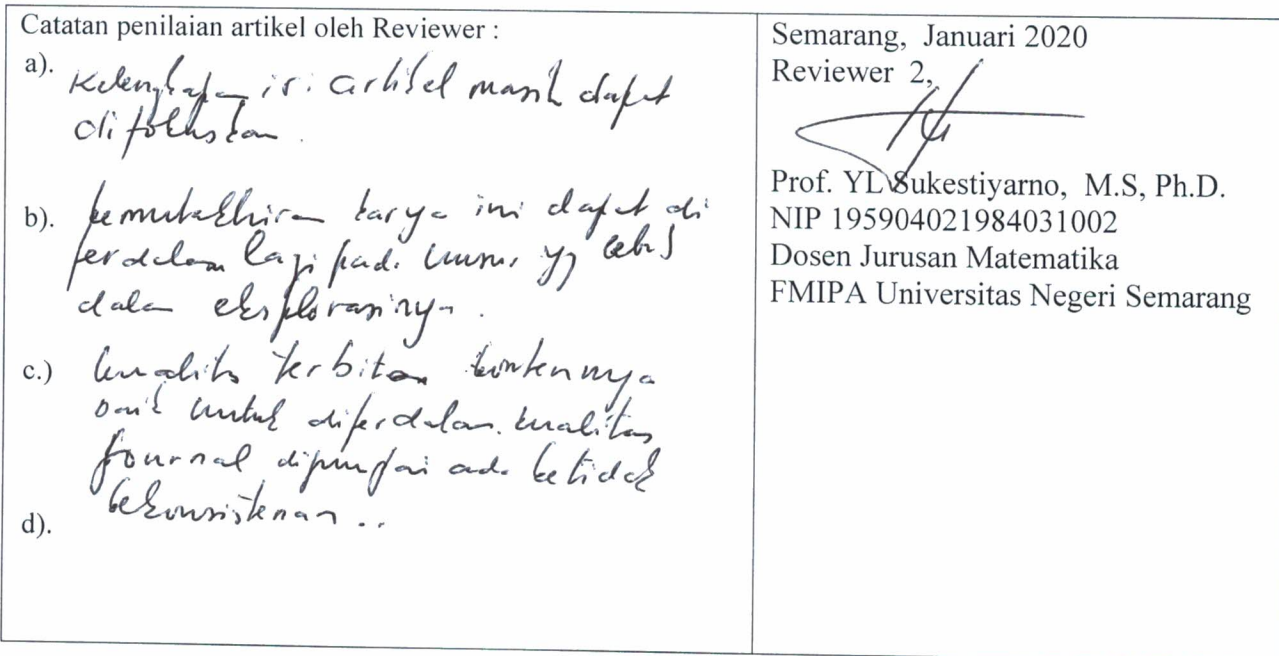 Catatan penilaian artikel oleh Reviewer :
a). Kelengkapan isi artikel masih dapat
difokuskan.
b). kemutakhiran karya ini dapat di
perdalam lagi pada unsur yg lebih
dalam eksplorasinya.
c.) kualitas terbitan kontennya
baik untuk diperdalam. kualitas
journal ada ketidak
kekonsistenan ..
d).
Semarang, Januari 2020
Reviewer 2,
Prof. YL Sukestiyarno, M.S, Ph.D.
NIP 195904021984031002
Dosen Jurusan Matematika
FMIPA Universitas Negeri Semarang